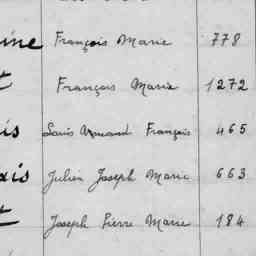 ine François Marie 778
t François Marie 1272
is Louis Armand François 465
ais Julien Joseph Marie 663
t Joseph Pierre Marie 184